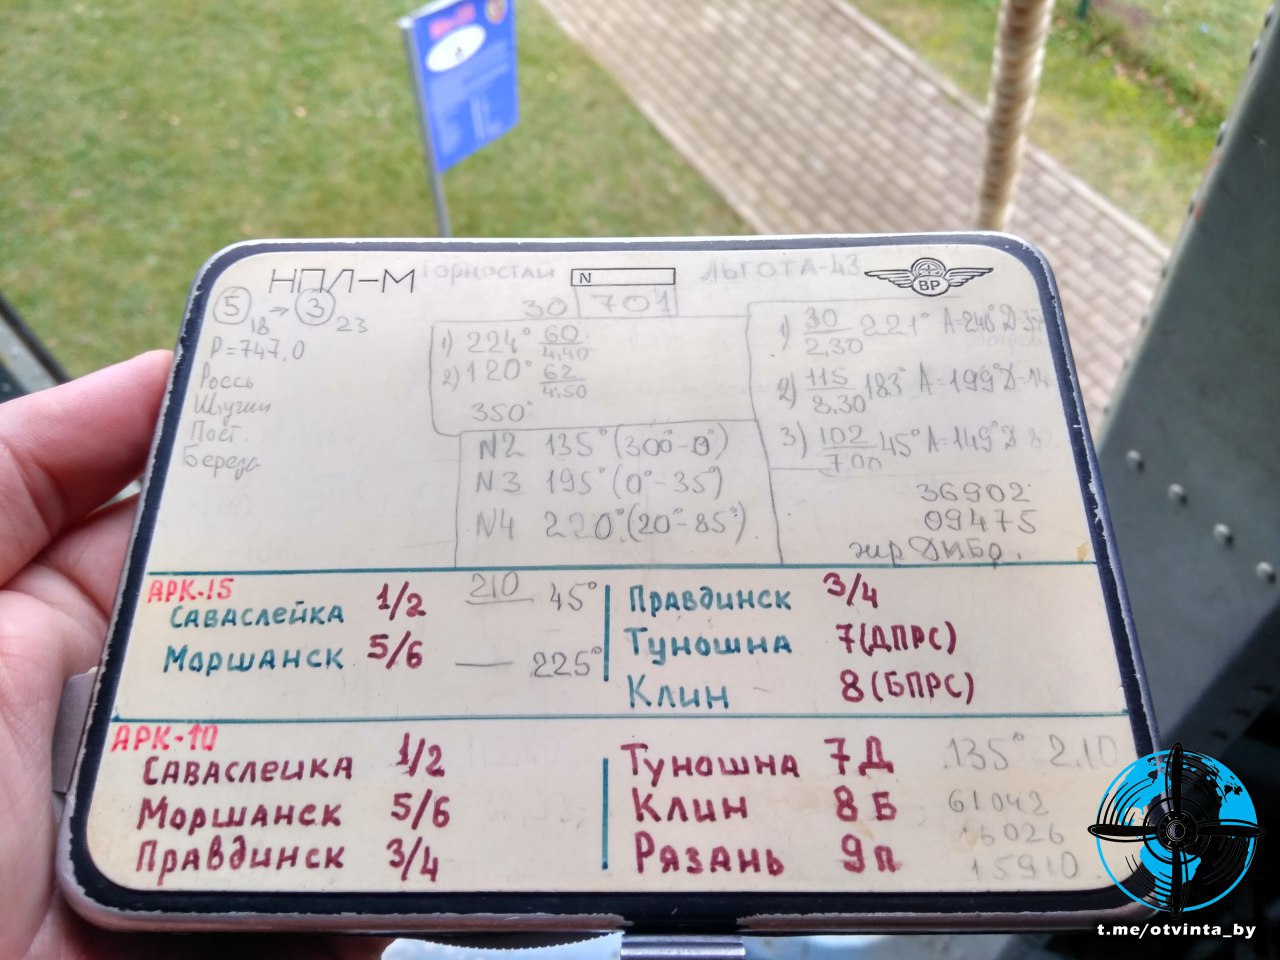 НПЛ-М Горностай N ЛЬГОТА-43 ВР
5 18 → 3 23
30 701
P=747,0
Россь
Щучин
Пост.
Береза
1) 224° 60/4.40
2) 120° 62/4.50
350°
N2 135° (300°-0°)
N3 195° (0°-35°)
N4 220° (20°-85°)
1) 30/2.30 221° А=246° Д
2) 115/8.30 183° А=199° Д=14
3) 102/7.00 45° А=149° Д
36902
09475
АРК-15
Саваслейка 1/2 210 45°
Моршанск 5/6 — 225°
Правдинск 3/4
Туношна 7(ДПРС)
Клин 8(БПРС)
АРК-10
Саваслейка 1/2
Моршанск 5/6
Правдинск 3/4
Туношна 7Д
Клин 8Б
Рязань 9п
135° 2.10
61042
15910
t.me/otvinta_by